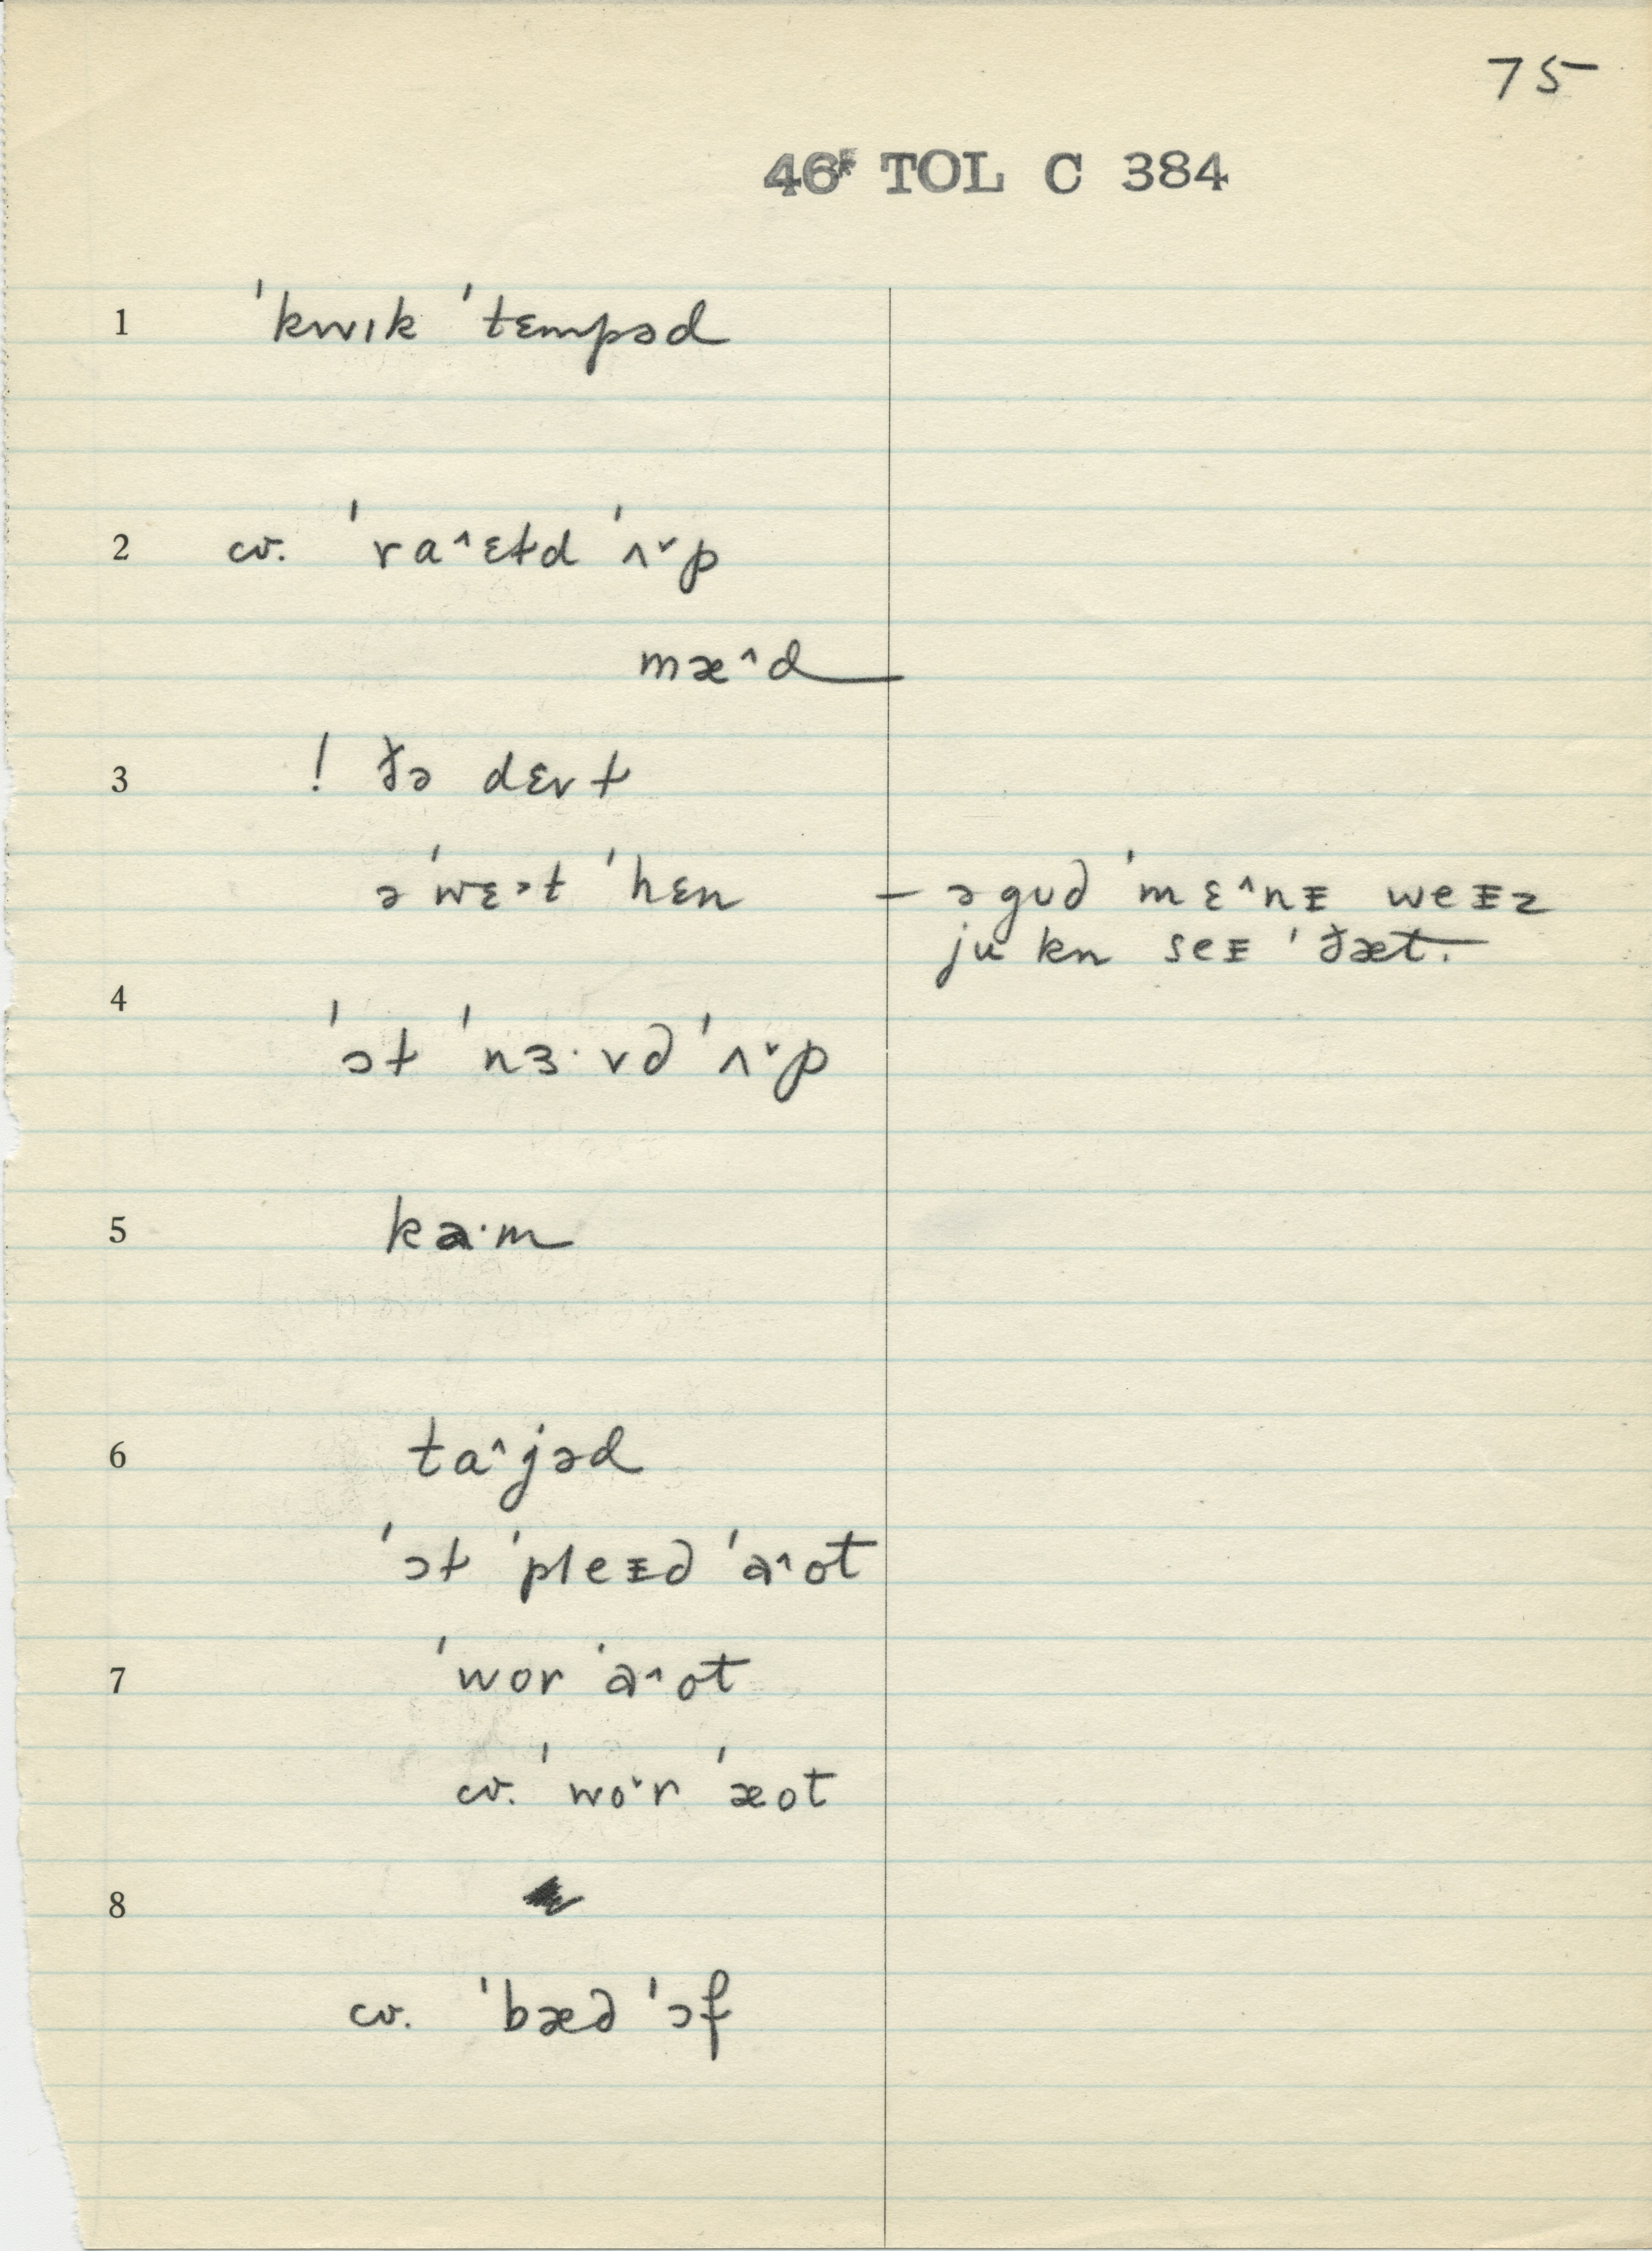 75
46* TOL C 384
1 ˈkwɪk ˈtɛmpəd
2 cv. ˈra^ɛtd ˈʌ˅p
mæ^d
3 ! ðə dɛrt
əˈwɛ˃t ˈhɛn — ə gʊd ˈmɛ^nᵻ weᵻz
ju kn seᵻ ˈðæt.
4
ˈɔt ˈnɜ·vd ˈʌ˅p
5 ka·m
6 ta^jəd
ˈɔt ˈpleᵻd ˈa^ot
7 ˈwor ˈa^ot
cv. ˈwo˅r ˈæot
8
cv. ˈbæd ˈɔf